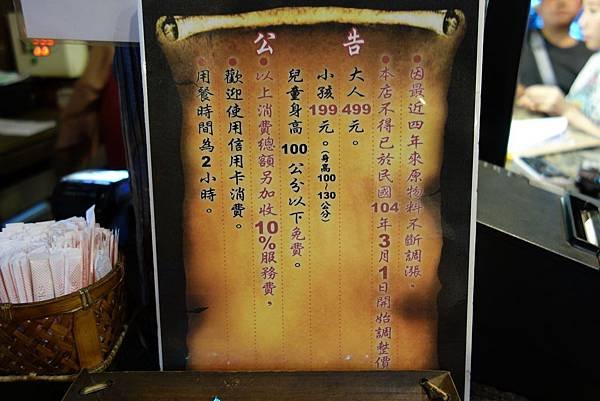 公告
因最近四年來原物料不斷調漲。
本店不得已於民國104年3月1日開始調整價
大人499元。
小孩199元。(身高100~130公分)
兒童身高100公分以下免費。
以上消費總額另加收10%服務費,
歡迎使用信用卡消費。
用餐時間為2小時。